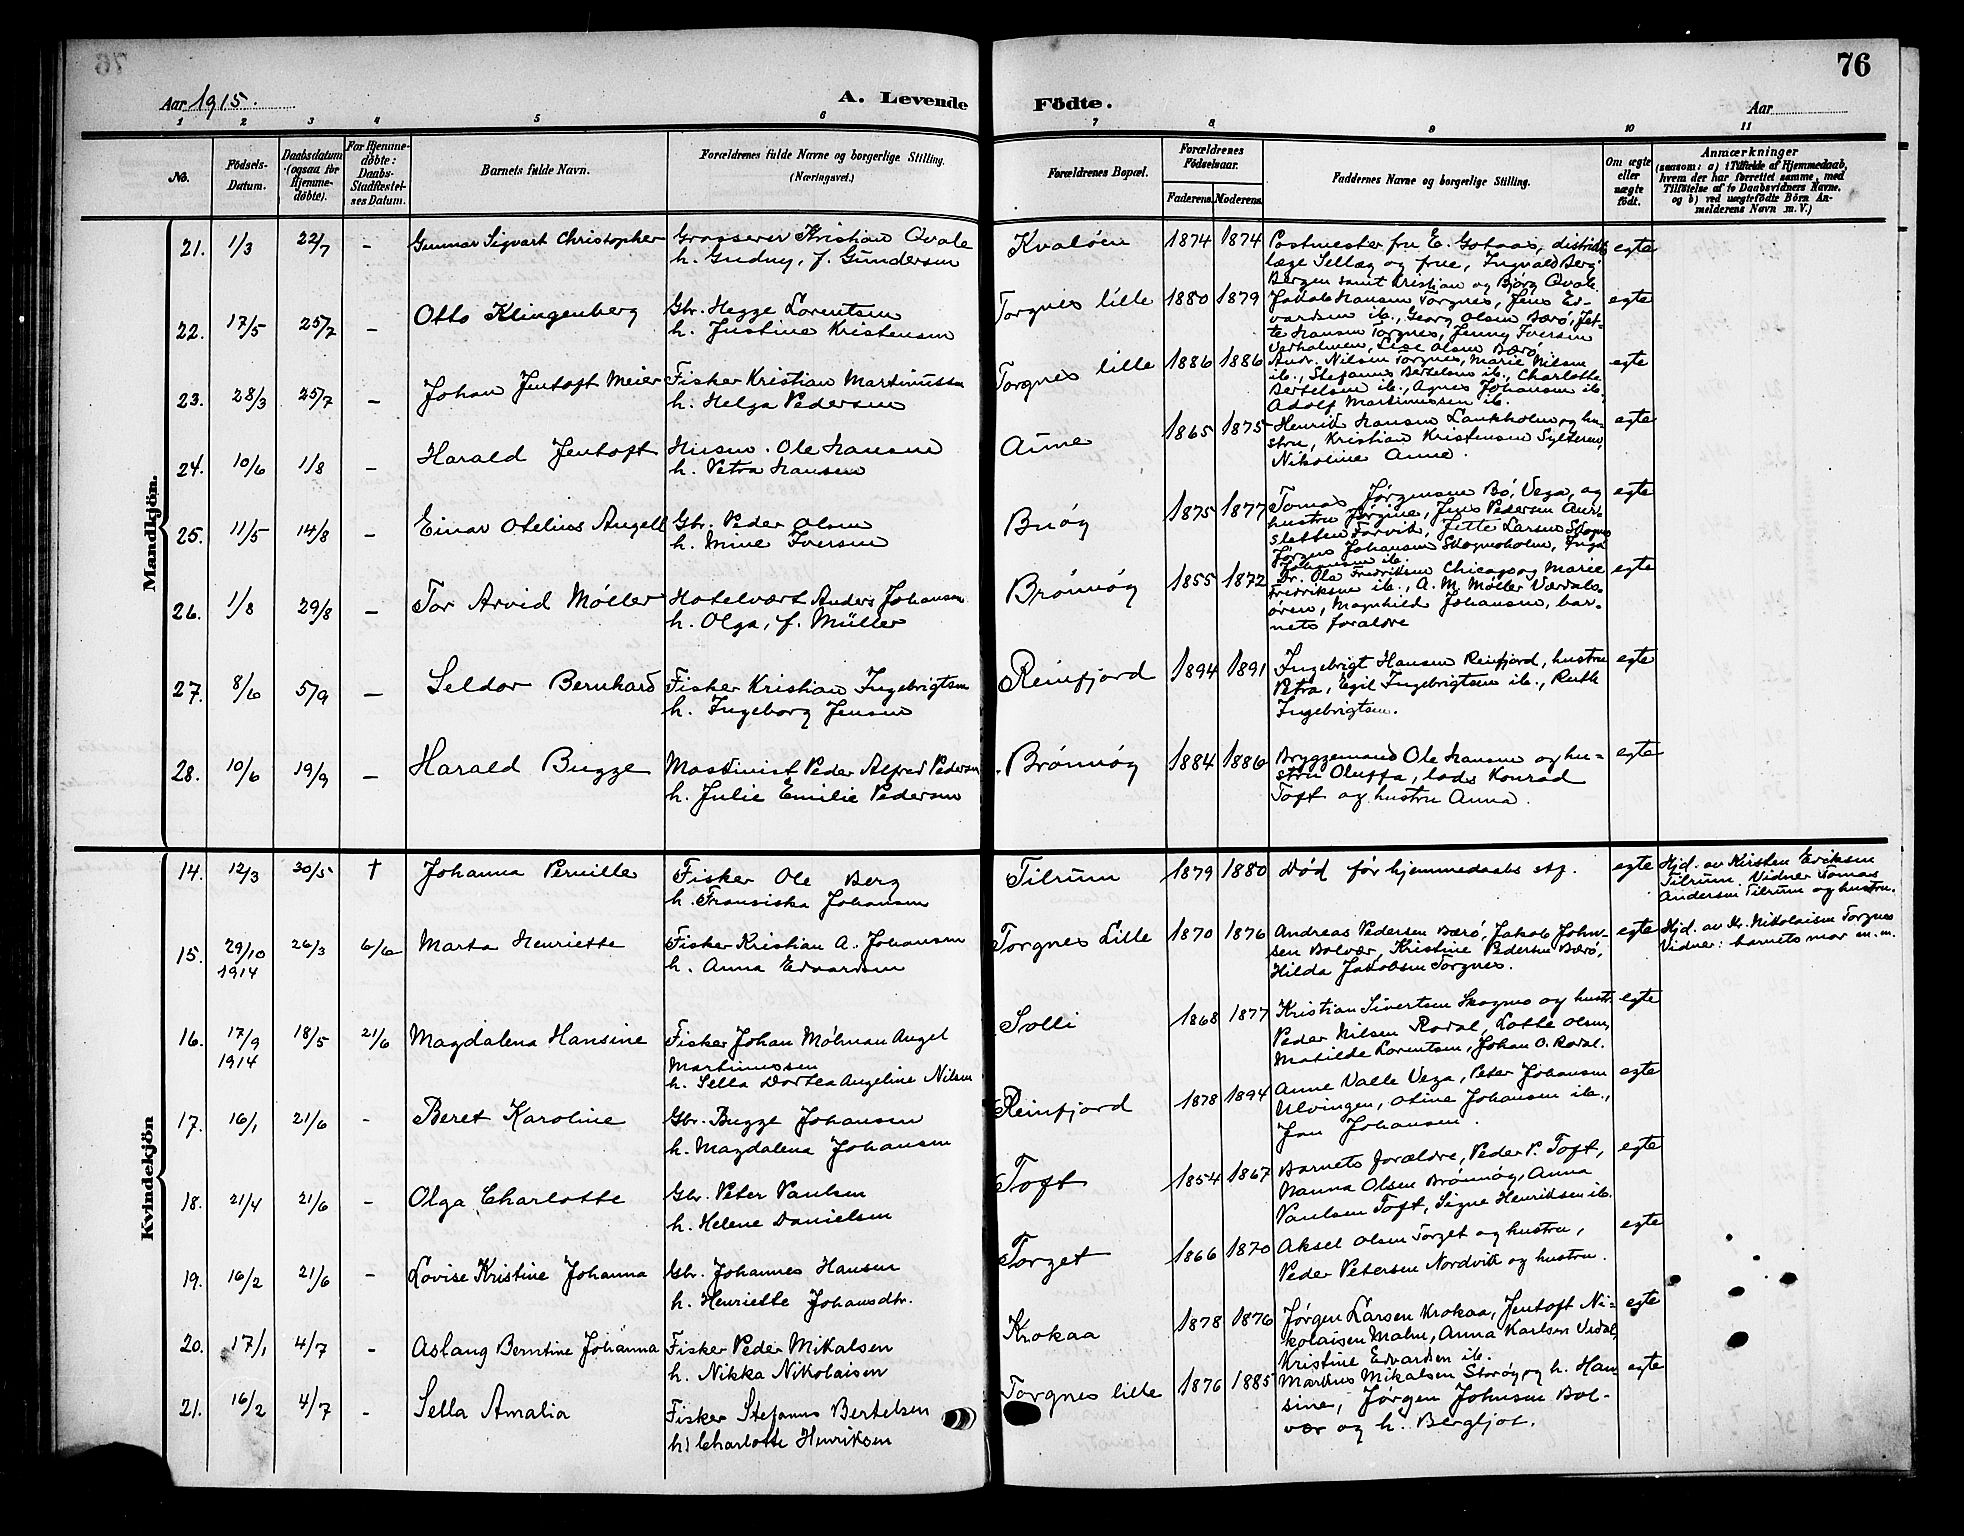 76
Aar 1915.
A. Levende Födte.
Aar
1 2 3 4 5 6 7 8 9 10 11
No.
Födsels-Datum.
Daabsdatum (ogsaa for Hjemme-döbte).
For Hjemme-döbte: Daabs-Stadfæstel-ses Datum.
Barnets fulde Navn.
Forældrenes fulde Navne og borgerlige Stilling.
(Næringsvei.)
Forældrenes Bopæl.
Forældrenes Födselsaar.
Faderens. Moderens.
Faddernes Navne og borgerlige Stilling.
Om ægte eller uægte födt.
Anmærkninger
(saasom: a) i Tilfælde af Hjemmedaab,
hvem der har forrettet samme, med
Tilføielse af to Daabsvidners Navne.
og b) ved uægtefödte Börn An-
melderens Navn m. V.)
Mandkjön.
21. 1/3 22/7 - Gunnar Sigvart Christopher
Grosserer Kristian Qvale
h. Gudny, f. Gundersen
Kvaløen 1874 1874
Postmester fru E. Gotaas, distrikts
læge Sellæg og frue, Ingvald Berg
Bergen samt Kristian og Bjørg Qvale.
egte
22. 17/5 25/7 - Otto Klingenberg
Gbr. Hegge Lorentsen
h. Justine Kristensen
Torgnes lille 1880 1879
Jakob Hansen Torgnes, Jens Ed-
vardsen ib., Georg Olsen Bærø, Jet-
te Hansen Torgnes, Jenny Iversen
Verholmen, Lise Olsen Bærø
egte
23. 28/3 25/7 - Johan Jentoft Meier
Fisker Kristian Martinussen
h. Helga Pedersen
Torgnes lille 1886 1886
Andr. Nilsen Torgnes, Marie Nilsen
ib., Stefanus Bertelsen ib., Charlotte
Bertelsen ib., Agnes Johansen ib.
Adolf Martinussen ib.
egte
24. 10/6 1/8 - Harald Jentoft
Husm. Ole Hansen
h. Petra Hansen
Aune 1865 1875
Henrik Hansen Lankholm og hu-
stru, Kristian Kristensen Sylteren,
Nikoline Aune.
egte
25. 11/5 14/8 - Einar Otelius Angell
Gbr. Peder Olsen
h. Mine Iversen
Buøy 1875 1877
Tomas Jørgensen Bø, Vega, og
hustru Jørgine, Jens Pedersen Aur-
sletten Forvik, Jette Larsen Skogns
Jørgen Johansen Skognsholm, Inga
Johansen ib.
egte
26. 1/8 29/8 - Tor Arvid Møller
Hotelvært Anders Johansen
h. Olga, f. Müller
Brønnøy 1855 1872
Dr. Ola Fredriksen Chicago og Marie
Fredriksen ib., A. M. Møller Værdals-
øren, Magnhild Johansen, bar-
nets forældre
egte
27. 8/6 5/9 - Seldor Bernhard
Fisker Kristian Ingebrigtsen
h. Ingeborg Jensen
Reinfjord 1894 1891
Ingebrigt Hansen Reinfjord, hustru
Petra, Egil Ingebrigtsen ib., Ruth
Ingebrigtsen.
egte
28. 10/6 19/9 - Harald Bugge
Maskinist Peder Alfred Pedersen
h. Julie Emilie Pedersen
Brønnøy 1884 1886
Bryggemand Ole Hansen og hu-
stru Oluffa, lods Konrad
Toft og hustru Anna.
egte
Kvindekjön
14. 12/3 30/5 † Johanna Pernille
Fisker Ole Berg
h. Fransiska Johansen
Tilrum 1879 1880
Død før hjemmedaabs stf.
egte
Hjd. av Kirsten Eriksen
Tilrum. Vidner Tomas
Andersen Tilrum og hustru.
15. 29/10 1914 26/3 6/6 Marta Henriette
Fisker Kristian A. Johansen
h. Anna Edvardsen
Torgnes Lille 1870 1876
Andreas Pedersen Bærø, Jakob John-
sen Bolvær, Kristine Pedersen Bærø,
Hilda Jakobsen Torgnes.
egte
Hjd. av Kr. Nikolaisen Torgnes
Vidner: barnets mor m. m.
16. 17/9 1914 18/5 21/6 Magdalena Hansine
Fisker Johan Mølman Angel
Martinussen
h. Sella Dortea Angeline Nilsen
Solli 1868 1877
Kristian Sivertsen Skogns og hustr.
Peder Nilsen Rodal, Lotte Olsen,
Matilde Lorentsen, Johan O. Rodal.
egte
17. 16/1 21/6 - Beret Karoline
Gbr. Bugge Johansen
h. Magdalena Johansen
Reinfjord 1878 1894
Anne Valle Vega, Peter Johansen
Ulvingen, Otine Johansen ib.,
Jan Johansen.
egte
18. 21/4 21/6 - Olga Charlotte
Gbr. Peter Paulsen
h. Helene Danielsen
Toft 1854 1867
Barnets forældre, Peder P. Toft,
Nanna Olsen Brønnøy, Anna
Paulsen Toft, Signe Henriksen ib.
egte
19. 16/2 21/6 - Lovise Kristine Johanna
Gbr. Johannes Hansen
h. Henriette Johansdtr.
Torget 1866 1870
Aksel Olsen Torget og hustru,
Peder Petersen Nordvik og hustru.
egte
20. 17/1 4/7 - Aslaug Berntine Johanna
Fisker Peder Mikalsen
h. Nikka Nikolaisen
Krokaa 1878 1876
Jørgen Larsen Krokaa, Jentoft Ni-
kolaisen Malm, Anna Karlsen Vedal,
Kristine Edvardsen ib.
egte
21. 16/2 4/7 - Sella Amalia
Fisker Stefanus Bertelsen
h. Charlotte Henriksen
Torgnes lille 1876 1885
Martinus Mikalsen Storøy og h. Han-
sine, Jørgen Johnsen Bol-
vær og h. Bergljot.
egte